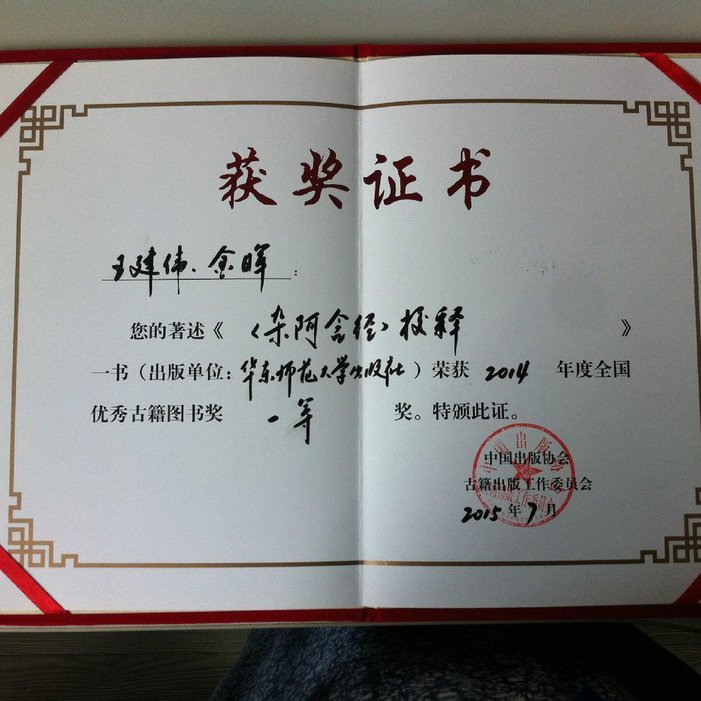 获奖证书
王建伟、金晖：
您的著述《〈杂阿含经〉校释》
一书（出版单位：华东师范大学出版社）荣获 2014 年度全国
优秀古籍图书奖 一等 奖。特颁此证。
中国出版协会
古籍出版工作委员会
2015年7月